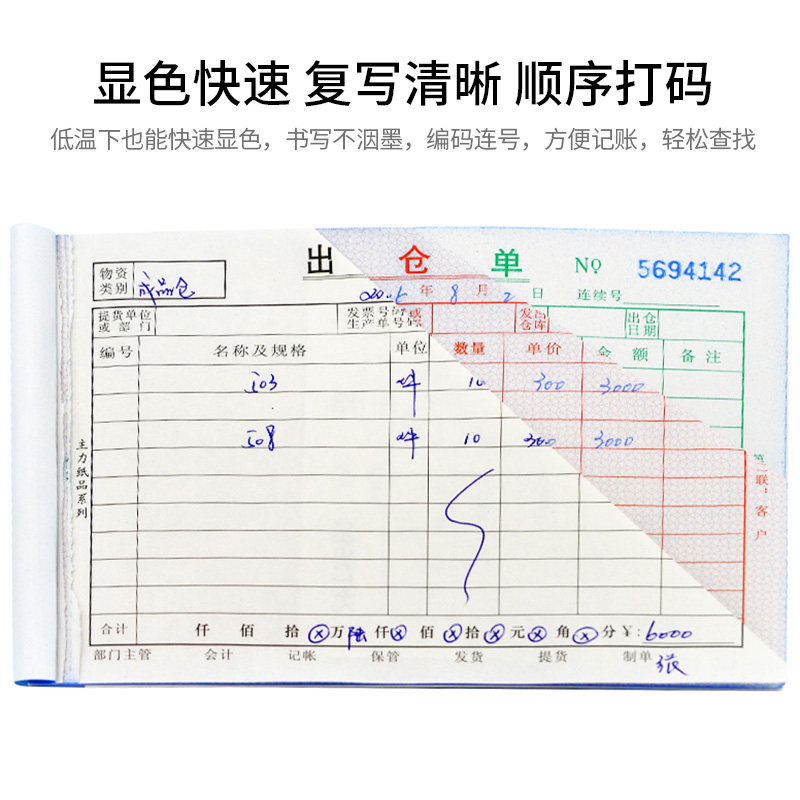 显色快速 复写清晰 顺序打码
低温下也能快速显色，书写不洇墨，编码连号，方便记账，轻松查找
出 仓 单 NO 5694142
物资类别 成品仓
年 8 月 2 日 连续号
提货单位或部门 发票号码或生产单号码 发出仓库 出仓日期
编号 名称及规格 单位 数量 单价 金额 备注
503 件 10 300 3000
508 件 10 300 3000
主力纸品系列
第二联：客户
合计 仟 佰 拾 ⊗ 万 陆 仟 ⊗ 佰 ⊗ 拾 ⊗ 元 ⊗ 角 ⊗ 分 ¥: 6000
部门主管 会计 记帐 保管 发货 提货 制单 张